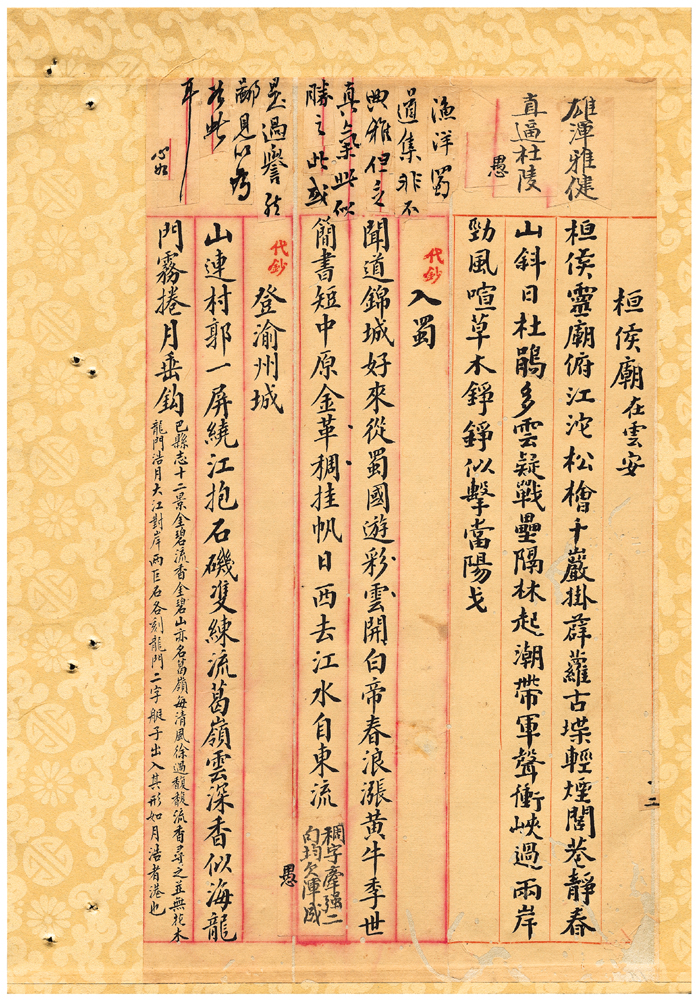 雄渾雅健
直逼杜陵
愚
桓侯廟在雲安
桓侯靈廟俯江沱松檜千巖掛薜蘿古堞輕煙閭巷靜春
山斜日杜鵑多雲疑戰壘隔林起潮帶軍聲衝峽過兩岸
勁風喧草木錚錚似擊當陽戈
漁洋蜀
道集非不
典雅但乏
真氣此似
勝之此或
是過譽然
鄙見以為
如此
耳
心如
代鈔
入蜀
聞道錦城好來從蜀國遊彩雲開白帝春浪漲黃牛季世
簡書短中原金革稠挂帆日西去江水自東流
稠字牽強二
句均欠渾成
愚
代鈔
登渝州城
山連村郭一屏繞江抱石磯雙練流葛嶺雲深香似海龍
門霧捲月垂鈎
巴縣志十二景金碧流香金碧山亦名葛嶺每清風徐過馥馥流香尋之並無花木
龍門浩月大江對岸兩巨石各刻龍門二字艇子出入其形如月浩者港也